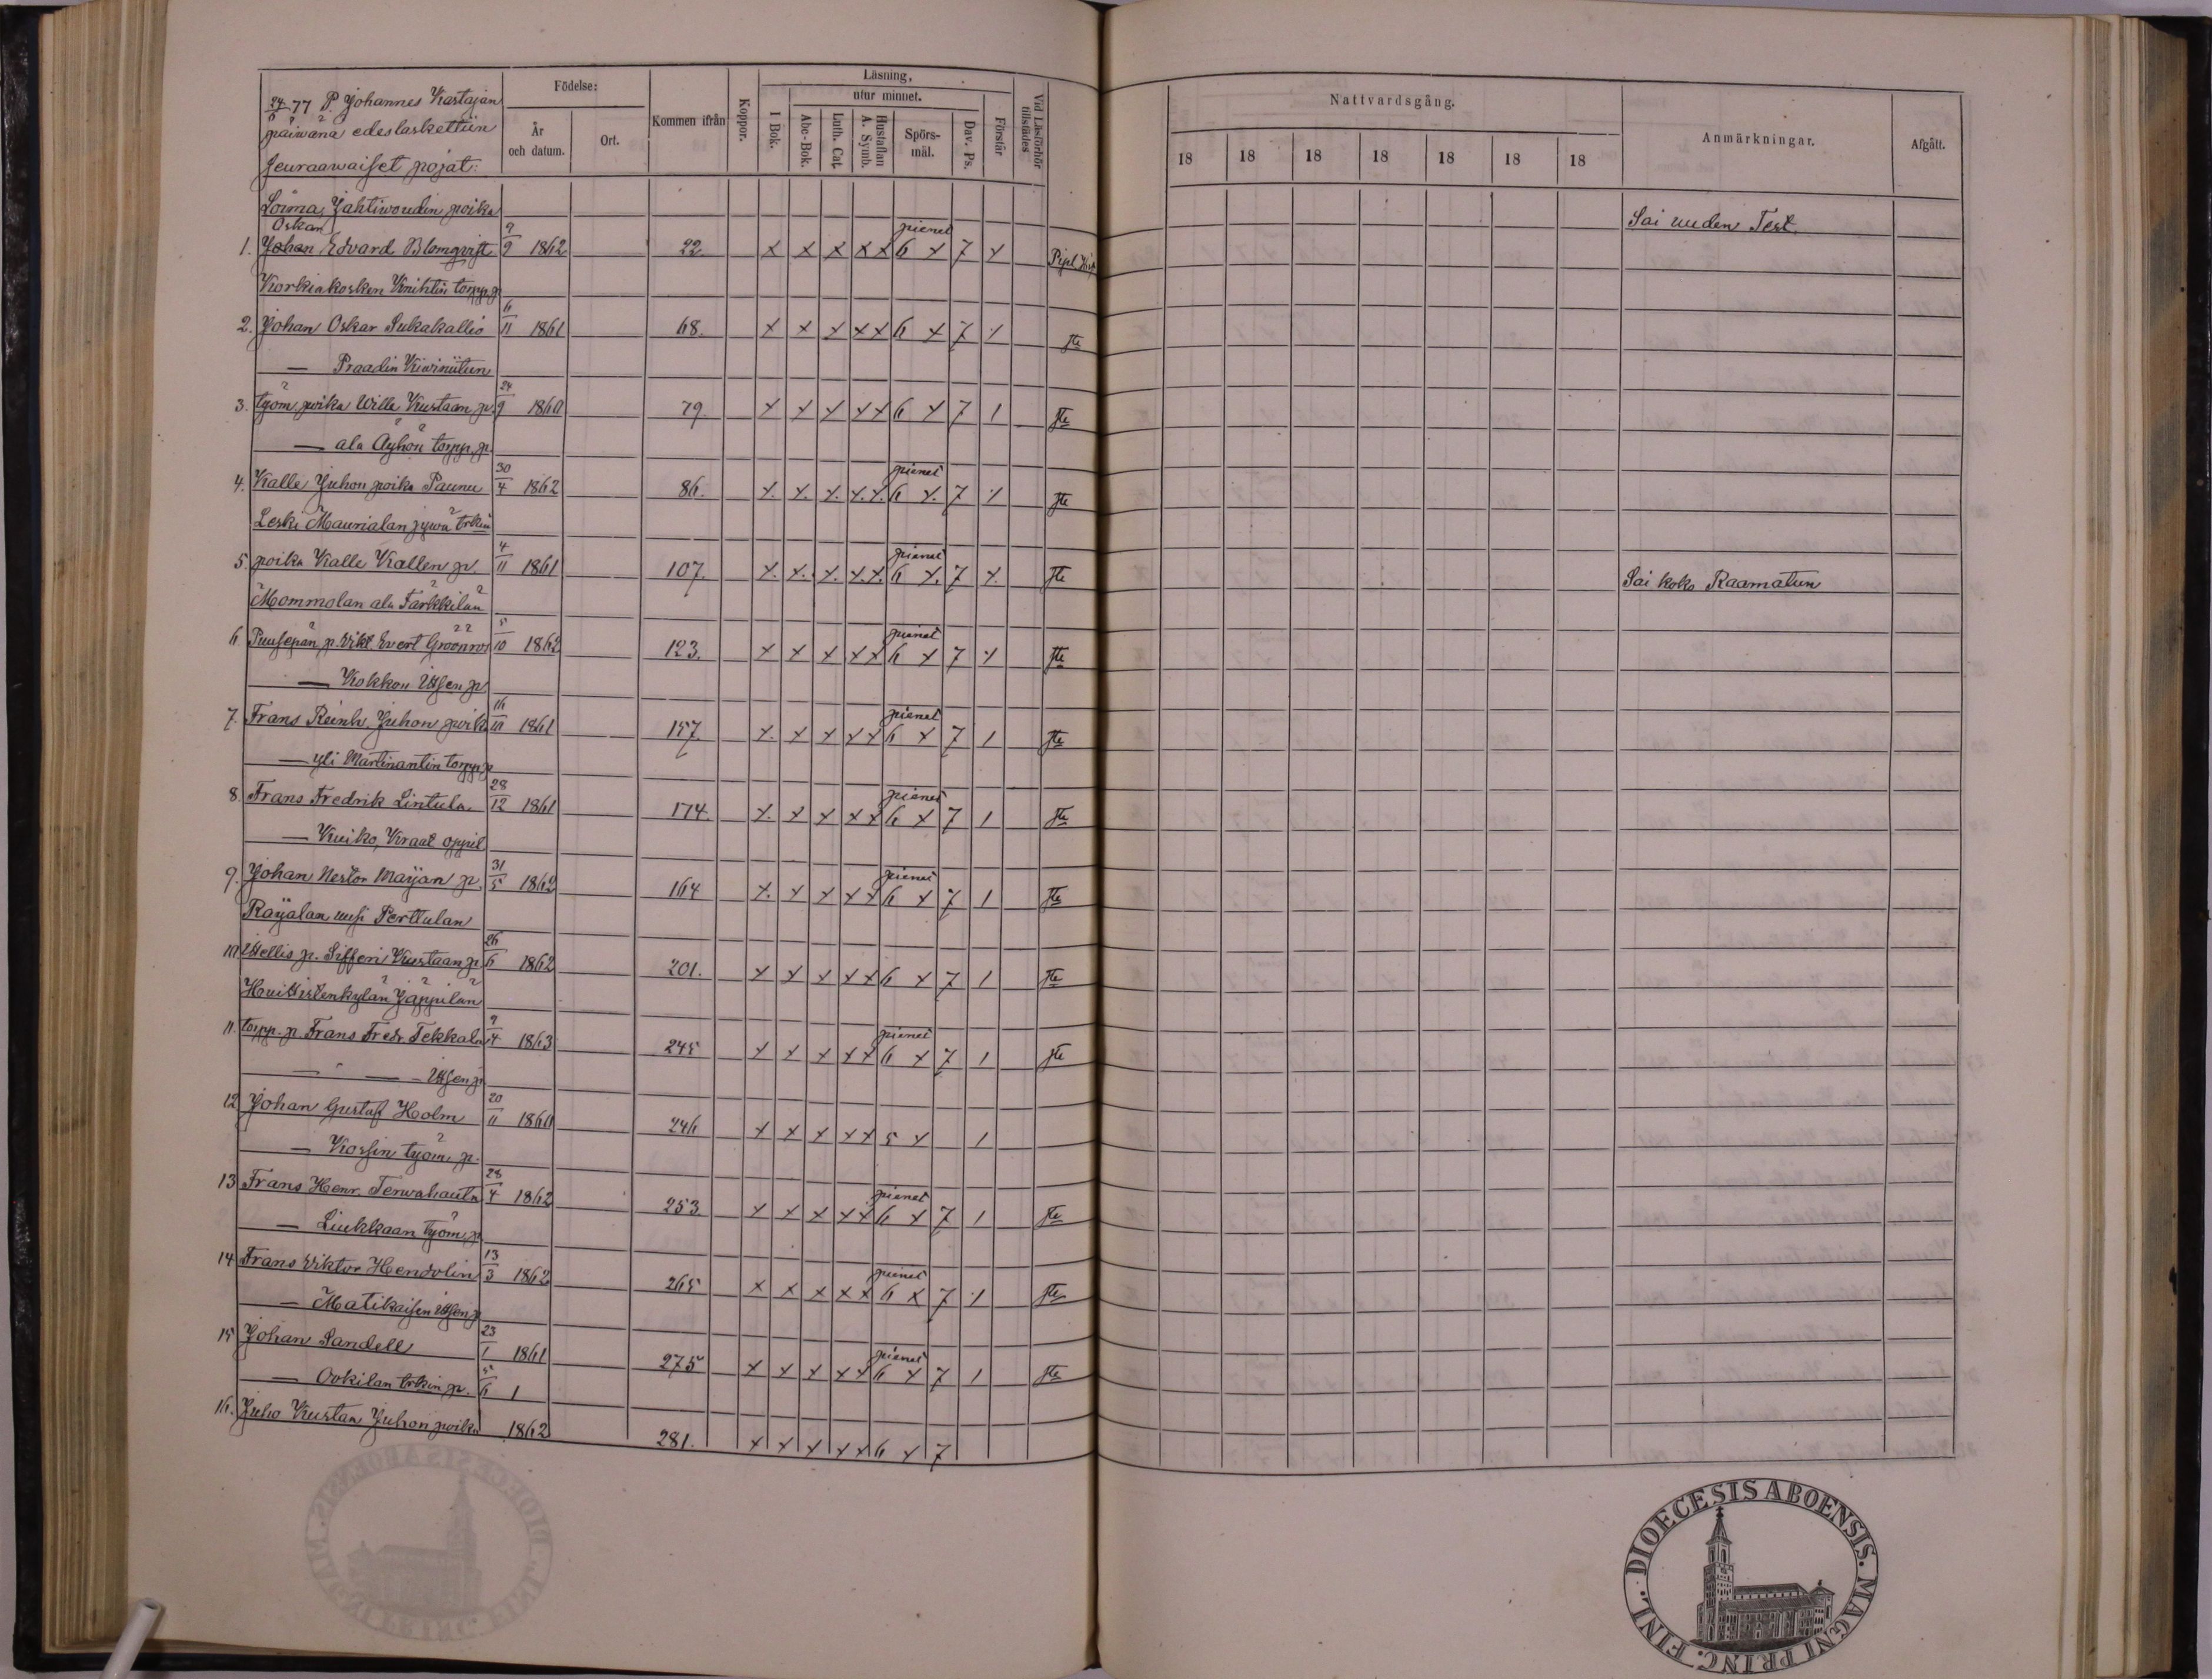 24/6 77 P. Johannes Kastajan
päiwänä edeslaskettiin
seuraawaiset pojat:
Födelse:
År och datum.
Ort.
Kommen ifrån
Koppor.
Läsning,
utur minnet.
I Bok.
Abc-Bok.
Luth. Cat.
Hustaflan A. Symb.
Spörs-mål.
Dav. Ps.
Förstår
Vid Läsförhör tillstädes
Nattvardsgång.
18 18 18 18 18 18 18
Anmärkningar.
Afgått.
Loima, Jahtiwoudin poika
Sai uuden Test.
Oskar
pienet
1. Johan Edvard Blomqvist 9/9 1862 22 x x x x x 6 x 7 x
Korkiakosken Knihtin torpp. p
2. Johan Oskar Sukakallio 6/11 1861 68. x x x x x 6 x 7 x
— Praadin
3. työm. poika Wille Kustaan p. 24/9 1860 79. x x x x x 6 x 7 1
— ala Äyhön torpp. p.
pienet
4. Kalle Juhon poika Paunu 30/4 1862 86. x. x. x. x. x. 6 x. 7 x
Leski Maurialan
pienet
5. poika Kalle Kallen p. 4/11 1861 107. x. x. x. x. x. 6 x. 7 x.
Sai koko Raamatun
Mommolan ala Tarkkilan
pienet
6 Puusepän p. Vikt. Evert Grönroos 5/10 1862 123. x x x x x 6 x 7 x
— Kokkon Itsen p.
pienet
7. Frans Reinh. Juhon poika 16/10 1861 157. x. x x x x 6 x 7 1
— yli Martinantin torpp. p
pienet
8. Frans Fredrik Lintula 28/12 1861 174. x. x x x x 6 x 7 1
— Kuiko, Kraat. oppil
pienet
9. Johan Nestor Maijan p. 31/5 1862 164 x. x x x x 6 x 7 1
Raijalan uusi Perttulan
10 Itsellis p. Sifferi Kustaan p. 26/6 1862 201. x x x x x 6 x 7 1
Huittistenkylän Jäppilän
pienet
11. torpp. p. Frans Fredr Tekkala 9/4 1863 245 x x x x x 6 x 7 1
— " — Itsen p
12 Johan Gustaf Holm 20/11 1860 246 x x x x x 5 x 1
— Kossin työm. p.
pienet
13 Frans Henr. Terwahauta 28/4 1862 253 x x x x x 6 x 7 1
— Liukkaan työm. p
pienet
14 Frans Viktor Hendolin 13/3 1862 265 x x x x x 6 x 7 1
— Matikaisen Itsen p
pienet
15 Johan Sandell 23/1 1861 275 x x x x x 6 x 7 1
— p. 5/6 1
16. Juho Kustaa Juhon poika 1862 281. x x x x x 6 x 7
DIOECESIS ABOENSIS. MAGNI PRINC. FINL.